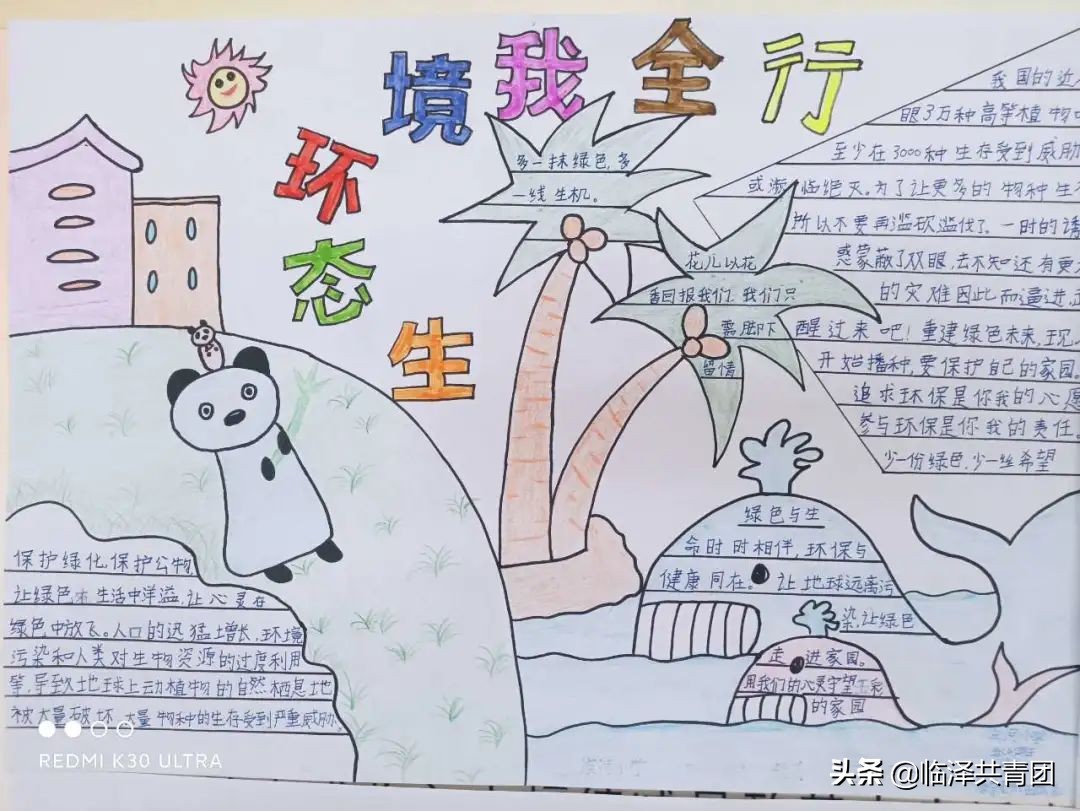 生态环境我全行
多一抹绿色,多
一线生机。
花儿以花
香回报我们,我们只
需脚下
留情
我国的近
眼3万种高等植物
至少在3000种生存受到威胁
或濒临绝灭。为了让更多的物种生
所以不要再滥砍滥伐了。一时的诱
惑蒙蔽了双眼,去不知还有更
的灾难因此而逼进
醒过来吧!重建绿色未来,现
开始播种,要保护自己的家园。
追求环保是你我的心愿
参与环保是你我的责任。
少一份绿色,少一丝希望
保护绿化,保护公物
让绿色在生活中洋溢,让心灵在
绿色中放飞。人口的迅猛增长,环境
污染和人类对生物资源的过度利用
等,导致地球上动植物的自然栖息地
被大量破坏,大量物种的生存受到严重威胁
绿色与生
命时时相伴,环保与
健康同在。让地球远离污
染,让绿色
走进家园。
用我们的心灵守望
的家园
REDMI K30 ULTRA
头条 @临泽共青团